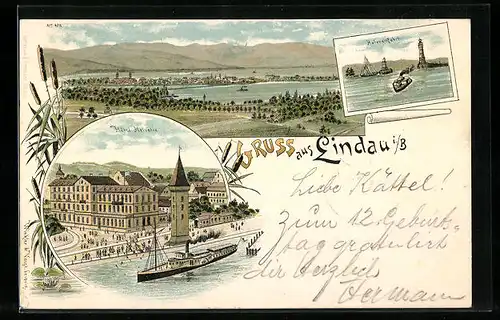 Hafeneinfahrt
Hôtel Helvetia
GRUSS aus Lindau i/B
Liebe Kättel!
Zum 12. Geburts-
tag gratulirt
dir herzlich
Hermann